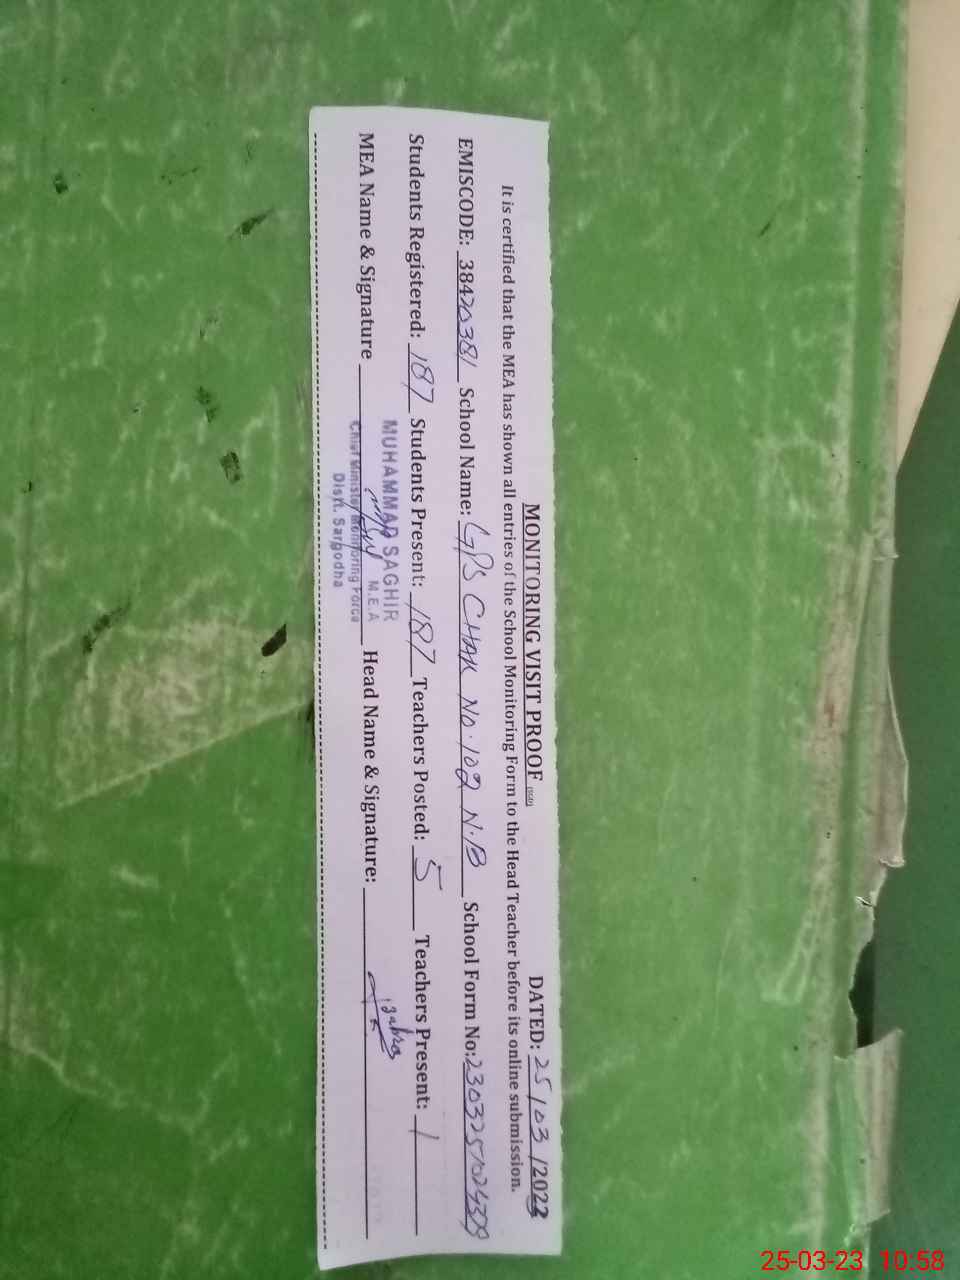 MONITORING VISIT PROOF DATED: 25/03/2023
It is certified that the MEA has shown all entries of the School Monitoring Form to the Head Teacher before its online submission.
EMISCODE: 38420381 School Name: GPS CHAK NO.102 N.B School Form No:
Students Registered: 187 Students Present: 187 Teachers Posted: 5 Teachers Present: 1
MEA Name & Signature Head Name & Signature:
MUHAMMAD SAGHIR
M.E.A
Chief Minister Monitoring Force
Distt. Sargodha
25-03-23 10:58